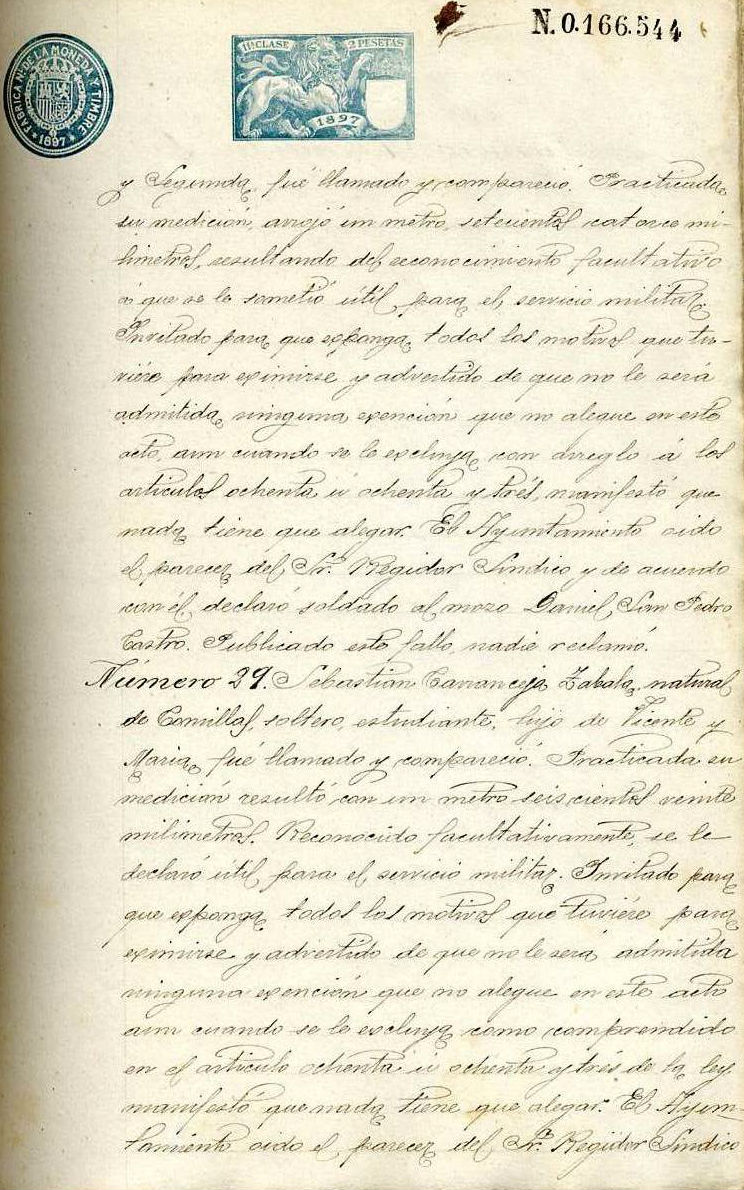 N. 0.166.544
FABRICA N. DE LA MONEDA Y TIMBRE
1897
11ª CLASE 2 PESETAS
1897
y Segunda, fué llamado y compareció. Practicada
su medición, arrojó un metro, setecientos catorce mi-
límetros, resultando del reconocimiento facultativo
á que se le sometió útil para el servicio militar.
Invitado para que exponga todos los motivos que tu-
viére para eximirse y advertido de que no le será
admitida ninguna exención que no alegue en este
acto, aun cuando se le excluya con arreglo á los
artículos ochenta ú ochenta y trés, manifestó que
nada tiene que alegar. El Ayuntamiento oido
el parecer del Sr. Regidor Síndico y de acuerdo
con él, declaró soldado al mozo Daniel San Pedro
Castro. Publicado este fallo, nadie reclamó.
Número 29. Sebastián Carranceja Zabala, natural
de Comillas, soltero, estudiante, hijo de Vicente y
María, fué llamado y compareció. Practicada su
medición resultó con un metro seiscientos veinte
milímetros. Reconocido facultativamente, se le
declaró útil para el servicio militar. Invitado para
que exponga todos los motivos que tuviére para
eximirse y advertido de que no le será admitida
ninguna exención que no alegue en este acto
aun cuando se le excluya como comprendido
en el artículo ochenta ú ochenta y trés de la ley
manifestó que nada tiene que alegar. El Ayun-
tamiento oido el parecer del Sr. Regidor Síndico